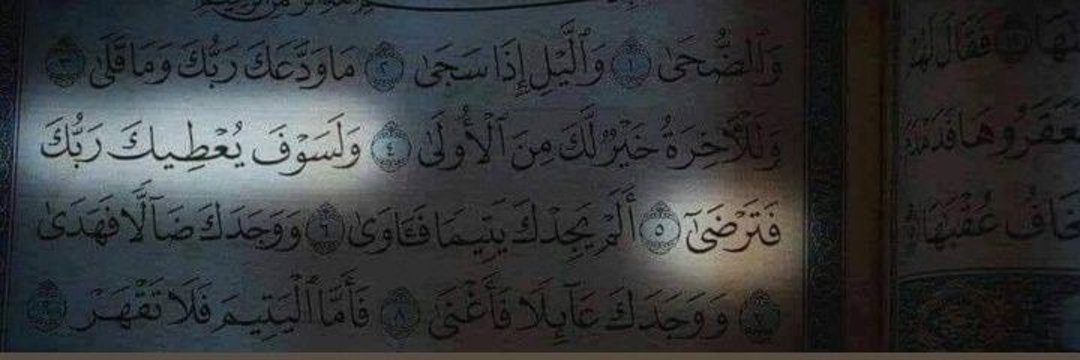 وَٱلضُّحَىٰ ١ وَٱلَّيْلِ إِذَا سَجَىٰ ٢ مَا وَدَّعَكَ رَبُّكَ وَمَا قَلَىٰ ٣
وَلَلْـَٔاخِرَةُ خَيْرٌ لَّكَ مِنَ ٱلْأُولَىٰ ٤ وَلَسَوْفَ يُعْطِيكَ رَبُّكَ
فَتَرْضَىٰٓ ٥ أَلَمْ يَجِدْكَ يَتِيمًا فَـَٔاوَىٰ ٦ وَوَجَدَكَ ضَآلًّا فَهَدَىٰ
٧ وَوَجَدَكَ عَآئِلًا فَأَغْنَىٰ ٨ فَأَمَّا ٱلْيَتِيمَ فَلَا تَقْهَرْ ٩
فَقَالَ لَهُمْ
فَعَقَرُوهَا فَدَمْدَمَ
يَخَافُ عُقْبَٰهَا